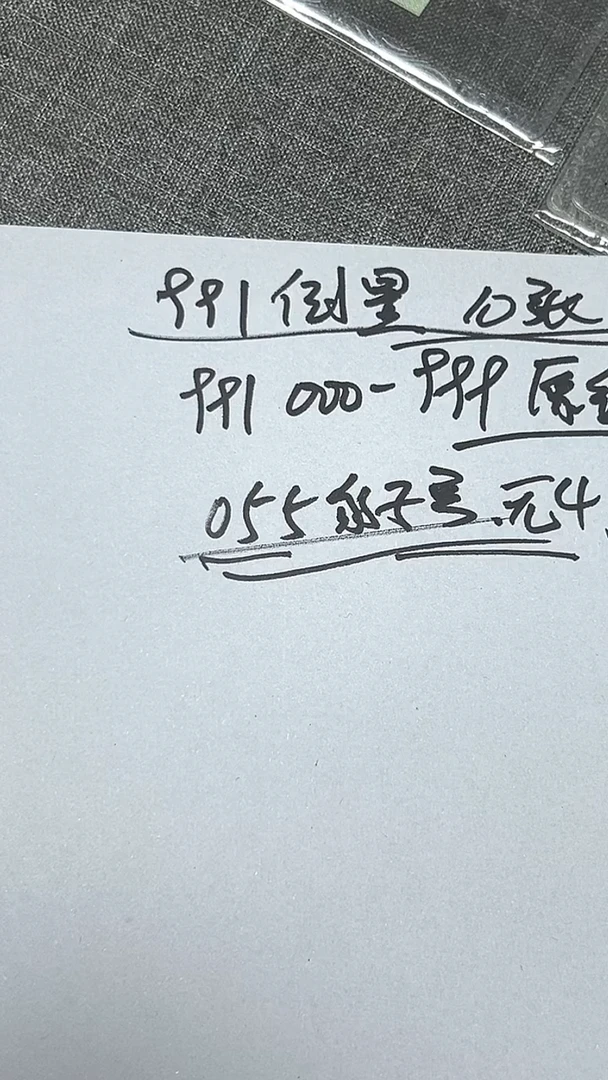 991倒置 10张
991 000-999 原
055 号.无4